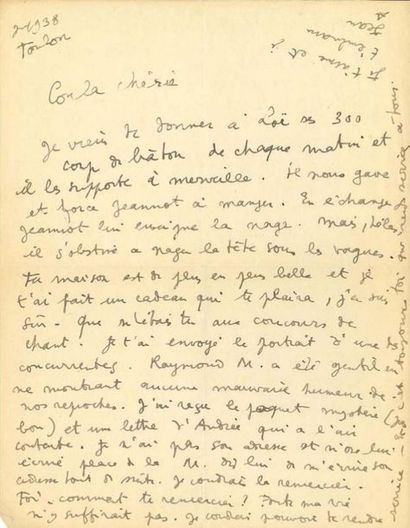 1938
Toulon
Je t'aime et je
t'embrasse
Jean
Coula chérie
Je viens de donner à Loï ses 300
coup de bâton de chaque matin et
il les supporte à merveille. Il nous gave
et force Jeannot à manger. En échange
Jeannot lui enseigne la nage. Mais, hélas,
il s'obstine à nager la tête sous les vagues.
Ta maison est de plus en plus belle et je
t'ai fait un cadeau qui te plaira, j'en suis
sûr. Que n'étais tu aux concours de
chant. Je t'ai envoyé le portrait d'une des
concurrentes. Raymond M. a été gentil en
ne montrant aucune mauvaise humeur de
nos reproches. J'ai reçu le paquet mystère
bon) et une lettre d'Andrée qui a l'air
contente. Je n'ai plus son adresse et n'ose lui
écrire place de la M. dis lui de m'écrire son
adresse tout de suite. Je voudrais la remercier.
Toi - comment te remercier? Toute ma vie
n'y suffirait pas. Je voudrais pouvoir te rendre
service - toi c'est toujours toi qui rends service à tous.